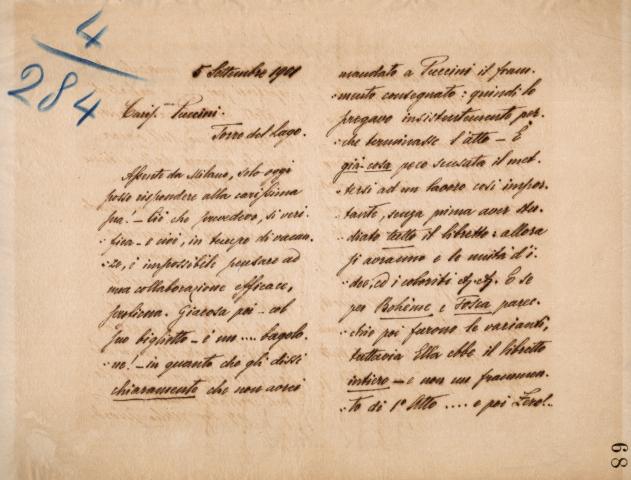 4
284
5 Settembre 1901
Caris.mo Puccini.
Torre del Lago.
Assente da Milano, solo oggi
posso rispondere alla carissima
sua! - Ciò che prevedevo, si veri-
fica - e cioè, in tempo di vacan-
ze, è impossibile pensare ad
una collaborazione efficace,
Giacosa poi - col
suo biglietto - è un .... bagolo-
ne! - in quanto che gli dissi
chiaramente che non avrei
mandato a Puccini il fram-
mento consegnato: quindi lo
pregavo insistentemente, per-
chè terminasse l'atto - È
già cosa poco sensata il met-
tersi ad un lavoro così impor-
tante, senza prima aver stu-
diato tutto il libretto: allora
si avranno e le unità d'i-
dee, ed i coloriti E se
per Bohème e Tosca parec-
chie poi furono le varianti,
tuttavia Ella ebbe il libretto
intiero - e non un frammen-
to di 1º Atto .... e poi Zero!..
89